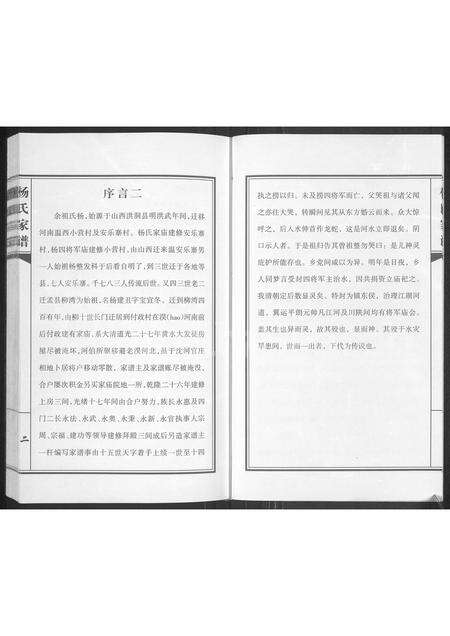 杨氏家谱
序言二
余祖氏杨，始源于山西洪洞县明洪武年间，迁林
河南温西小营村及安乐寨村。杨氏家庙建修安乐寨
村，杨四将军庙建修小营村，由山西迁来温安乐寨男
一人始祖杨整发科于后看自明了，到三世迁于各地等
县，七人安乐寨，千七八三人传流后世。又四三世老二
迁孟县柳湾为始祖，名杨建丑字宝宣条，迁到柳湾四
百有年，由柳十世长门迁居到付政村在滨(hao)河南前
后付政建有家庙，系大清道光二十七年黄水大发徒房
屋尽被淹坏，河伯所驱移避老溴河北，虽于沈河官庄
相地卜居将户移动零散，家谱主及家谱账尽被淹没，
合户屡次积金另买家庙院地一所，乾隆二十六年建修
上房三间，光绪十七年间由合户努力，族长永惠及四
门二长永法、永武、永勇、永秉、永新、永官执事人宗
周、宗福、建功等领导建修拜殿三间成后另造家谱主
一杆编写家谱事由十五世天字着手上续一世至十四
二
执之捞以归。未及捞四将军而亡，父哭祖与诸父闻
之亦往大哭，转瞬间见其从东方婚云而来。众大惊
呼之，后入水伸首作龙蛇，这是河水立即退矣。阴
以示人者，于是祖归告其曾祖整勿哭曰：是儿神灵
庇护所能存也。乡党间咸以为异。明年是日夜，乡
人同梦言受封四将军主治水，因共捐资立庙祀之。
我清朝定后数显灵矣，特封为镇东侯，治理江湖河
道，翼运平朗元帅凡江河及川陕间均有将军庙会，
盖其生也异而灵，故其殁也，显而神。其殁于水灾
旱患间，世而一出者，下代为传说也。